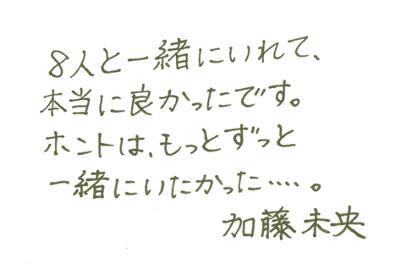 8人と一緒にいれて、
本当に良かったです。
ホントは、もっとずっと
一緒にいたかった‥‥。
加藤未央